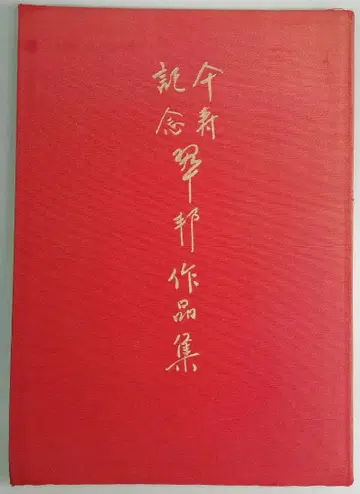 傘寿
記念
翠邦作品集